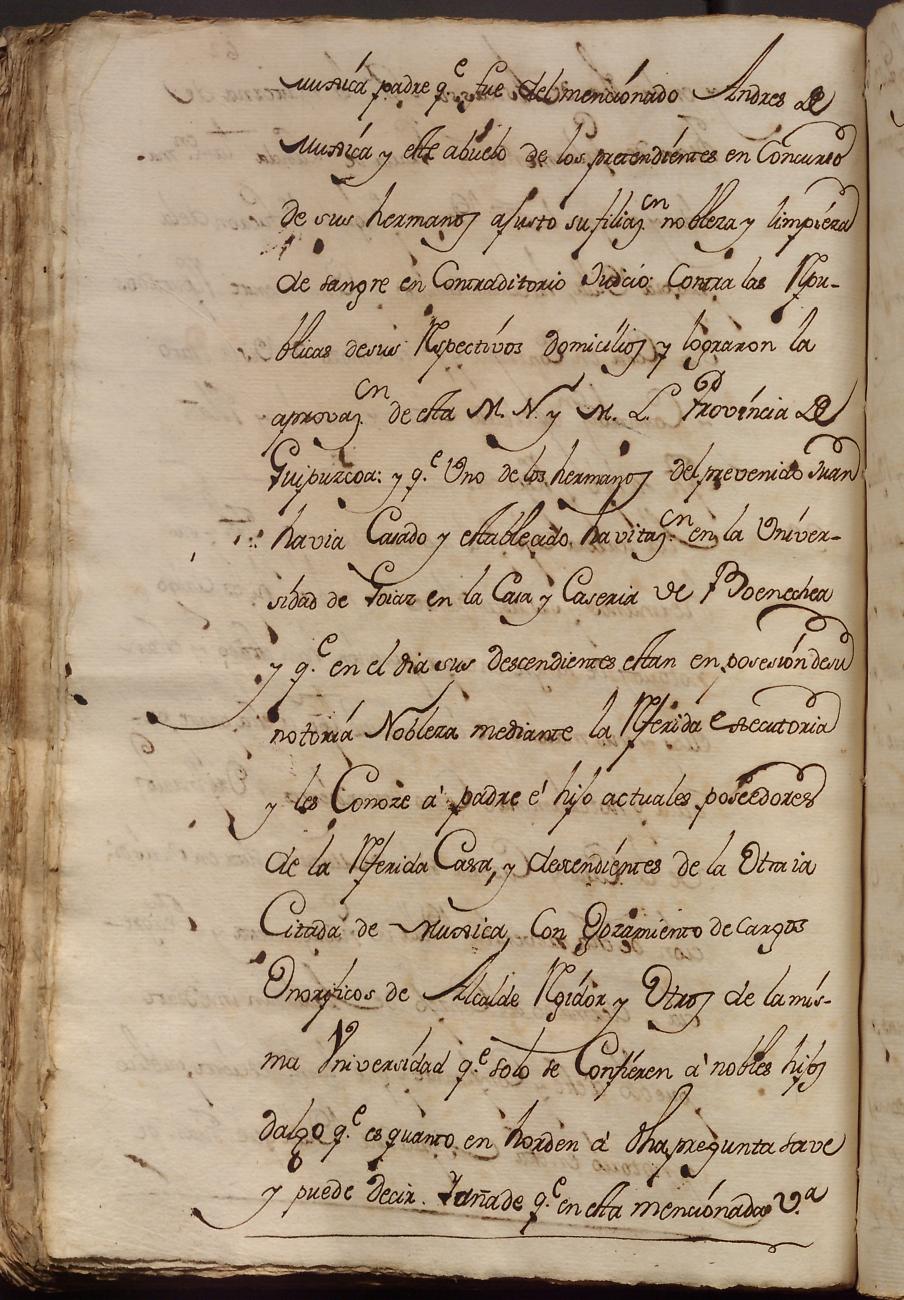 Muxica padre q.e fue del mencionado Andres de
Muxica y este abuelo de los pretendientes en Concurso
de sus hermanos ajusto su filiaz.cn nobleza y limpieza
de sangre en Contraditorio Judicio Contra las Repu-
blicas desus Respectivos domicilios y lograron la
aprovaz.cn de esta M. N. y M. L. Provincia de
Guipuzcoa: y q.e Uno de los hermanos del prevenido Juan
havia Casado y establecido havitaz.cn en la Univer-
sidad de Goiaz en la Casa y Caseria de Boenechea
y q.e en el dia sus descendientes estan en posesion desu
notoria Nobleza mediante la Referida executoria
y les Conoze á padre é hijo actuales poseedores
de la Referida Casa, y desendientes de la Otra ia
Citada de Muxica, Con Gozamiento de Cargos
Onorificos de Alcalde Regidor y Otros de la mis-
ma Universidad q.e solo se Confieren á nobles hijos
dalgo q.e es quanto en horden á dha pregunta save
y puede decir. Iañade q.e en esta mencionada V.a